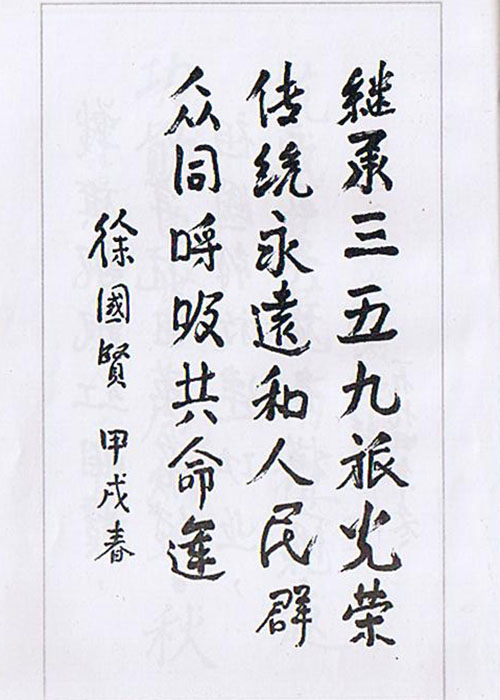 继承三五九旅光荣
传统永遠和人民群
众同呼吸共命運
徐國賢 甲戌春